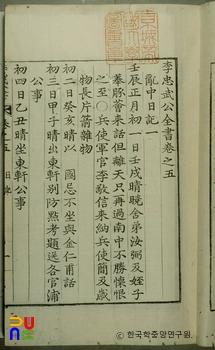 李忠武公全書卷之五
亂中日記一
壬辰正月初一日壬戌晴曉舍弟汝弼及姪子
菶豚薈來話但離天只再過南中不勝懷恨
之至〇兵使軍官李敬信來納兵使簡及歲
物長片箭雜物
初二日癸亥晴以 國忌不坐與金仁甫話
初三日甲子晴出東軒別防點考題送各官浦
公事
初四日乙丑晴坐東軒公事
한국학중앙연구원